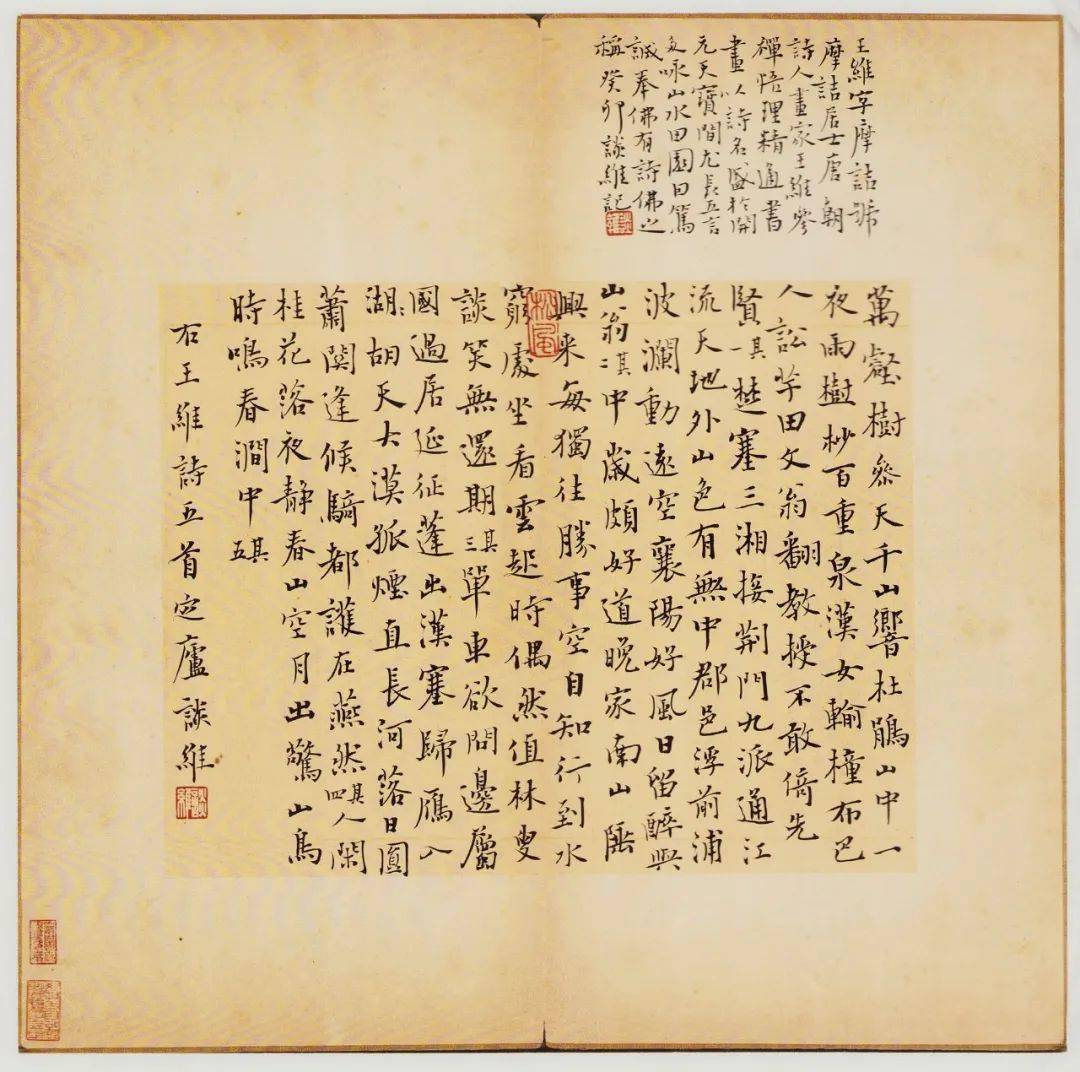 王維字摩詰號
摩詰居士唐朝
詩人畫家王維參
禪悟理精通書
畫以詩名盛於開
元天寶間尤長五言
多咏山水田園曰篤
誠奉佛有詩佛之
稱癸卯談維記
談維
萬壑樹參天千山響杜鵑山中一
夜雨樹杪百重泉漢女輸橦布巴
人訟芋田文翁翻教授不敢倚先
賢其一楚塞三湘接荊門九派通江
流天地外山色有無中郡邑浮前浦
波瀾動遠空襄陽好風日留醉與
山翁其二中歲頗好道晚家南山陲
興来每獨往勝事空自知行到水
窮處坐看雲起時偶然值林叟
談笑無還期其三單車欲問邊屬
國過居延征蓬出漢塞歸鴈入
湖胡天大漠孤煙直長河落日圓
蕭關逢候騎都護在燕然其四人閑
桂花落夜靜春山空月出驚山鳥
時鳴春澗中其五
右王維詩五首定廬談維
談維
松風